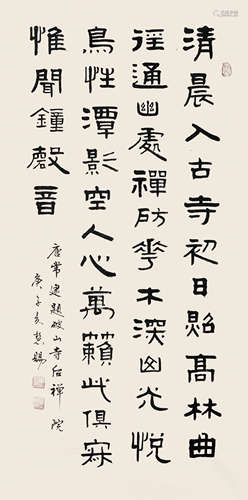 清晨入古寺初日照髙林曲
徑通幽處禪房花木深山光悅
鳥性潭影空人心萬籟此俱寂
惟聞鐘磬音
唐常建題破山寺后禪院
庚子